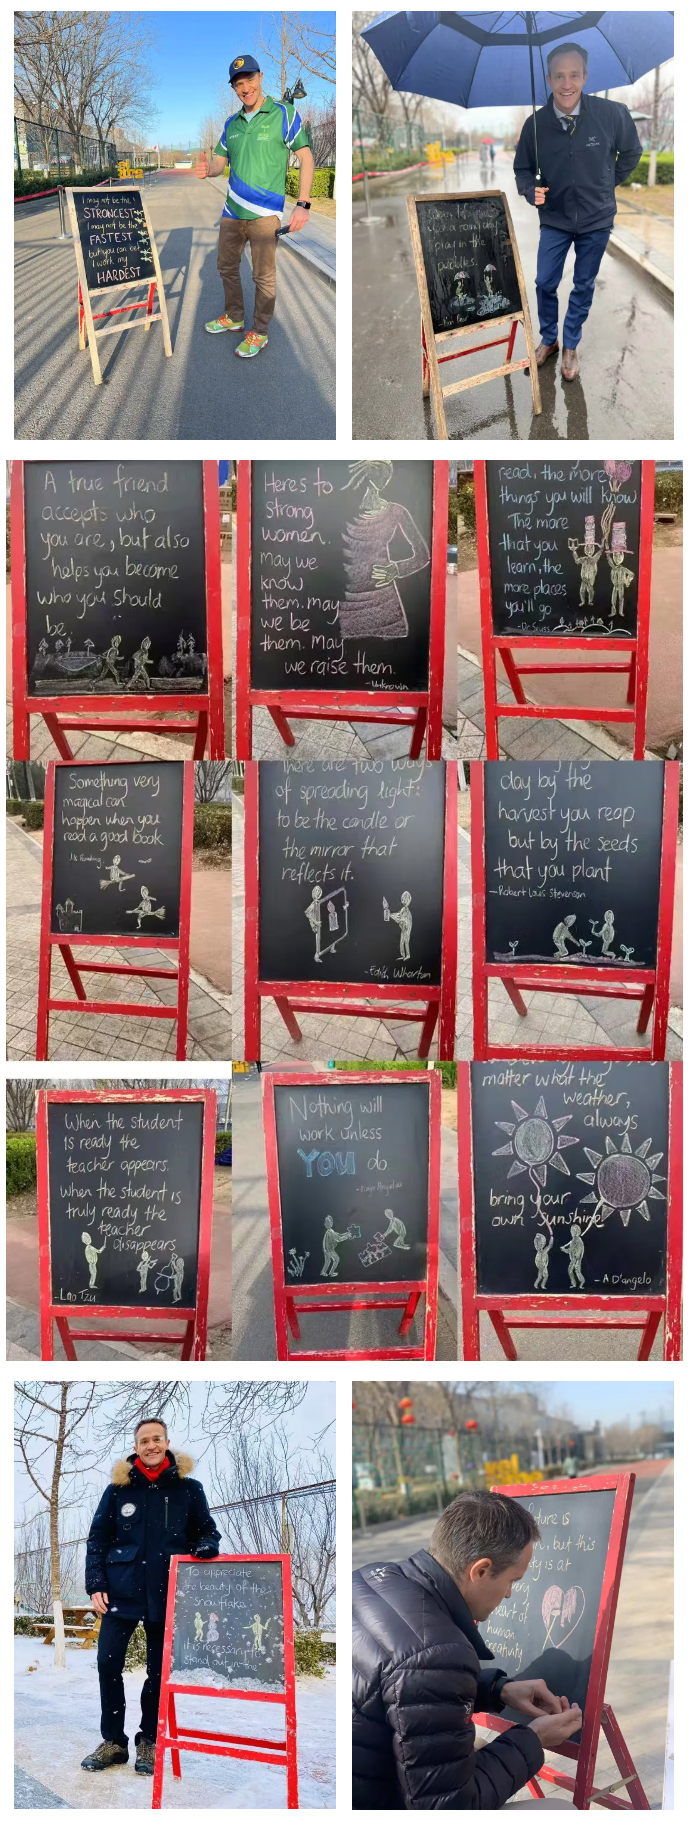 I may not be the
STRONGEST
I may not be the
FASTEST
but you can bet
I work my
HARDEST
a rainy day
play in the
puddles.
A true friend
accepts who
you are, but also
helps you become
who you should
be.
Here's to
strong
women.
may we
know
them. may
we be
them. May
we raise them.
-Unknown
read, the more
things you will know
The more
that you
learn, the
more places
you'll go
-Dr Seuss
Something very
magical can
happen when you
read a good book
There are two ways
of spreading light:
to be the candle or
the mirror that
reflects it.
-Edith Wharton
day by the
harvest you reap
but by the seeds
that you plant
-Robert Louis Stevenson
When the student
is ready the
teacher appears.
When the student is
truly ready the
teacher
disappears
-Lao Tzu
Nothing will
work unless
YOU do
matter what the
weather,
always
bring your
own sunshine
- A D'angelo
To appreciate
the beauty of the
snowflake
it is necessary to
stand out in the
is
but this
is at
heart of
human
creativity